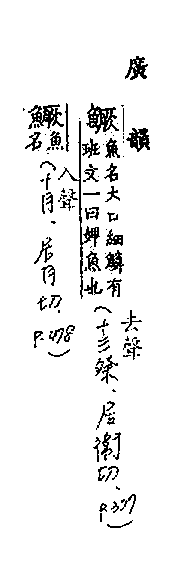 廣韻
鱖魚名大口細鱗有
班文一曰婢魚也
去聲
(十三祭、居衛切、P.377)
鱖魚
魚名
入聲
(十月、居月切、P.478)